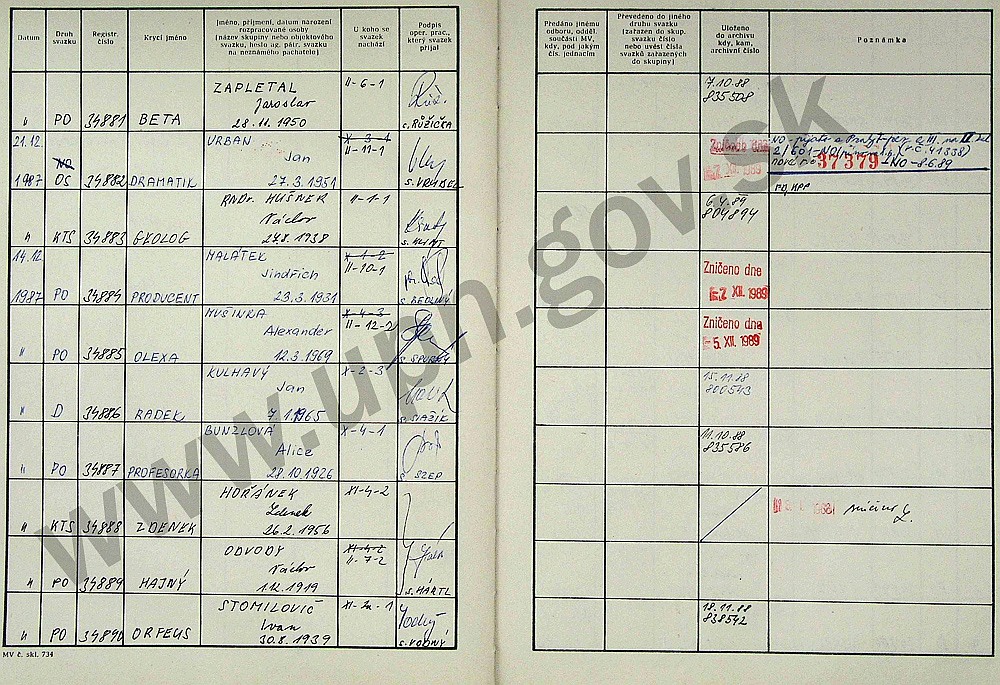 Datum
Druh svazku
Registr. číslo
Krycí jméno
Jméno, příjmení, datum narození rozpracované osoby (název skupiny nebo objektového svazku, heslo ag. pátr. svazku na neznámého pachatele)
U koho se svazek nachází
Podpis oper. prac., který svazek přijal
Předáno jinému odboru, odděl. součásti MV, kdy, pod jakým čís. jednacím
Převedeno do jiného druhu svazku (zařazen do skup. svazku číslo nebo uvést čísla svazků zařazených do skupiny)
Uloženo do archivu kdy, kam, archivní číslo
Poznámka
ZAPLETAL II-6-1 7.10.88
Jaroslav 835508
" PO 34881 BETA 28.11.1950 s. RŮŽIČKA
21.12. URBAN X-3-1 Zničeno dne
NO Jan II-11-1 XII. 1989
1987 OS 34882 DRAMATIK 27.3.1951 s. VRÁBEL 37379 -NO-8.6.89
RNDr. HUŠNER II-1-1 6.4.89
Václav 804894
" KTS 34883 GEOLOG 27.8.1938 s. KLINT
14.12. MALÁTEK X-1-2 Zničeno dne
Jindřich II-10-1 XII. 1989
1987 PO 34884 PRODUCENT 23.3.1931 s. BEDLIVÝ
MUŠINKA X-4-3 Zničeno dne
Alexander II-12-2 -5. XII. 1989
" PO 34885 OLEXA 12.3.1969 s. SPURNÝ
KULHAVÝ X-2-3 15.11.88
Jan 800543
" D 34886 RADEK 7.1.1965
BUNZLOVÁ X-4-1 11.10.88
Alice 835586
" PO 34887 PROFESORKA 28.10.1926 s. SZEP
HOŘÁNEK XI-4-2
Zdenek
" KTS 34888 ZDENEK 26.2.1956
ODVODY XI-4-2
Václav II-7-2
" PO 34889 HAJNÝ 1.12.1919 s. HÁRTL
STOMILOVIČ XI-2a-1 18.11.88
Ivan 838542
" PO 34890 ORFEUS 30.8.1939 s. VODNÝ
MV č. skl. 734
www.upn.gov.sk